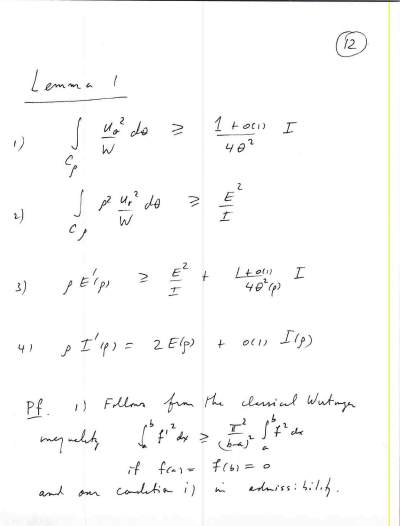 12
Lemma 1
1) ∫_{C_ρ} u_θ²/W dθ ≥ (1 + o(1))/(4θ²) I
2) ∫_{C_ρ} ρ² u_r²/W dθ ≥ E²/I
3) ρ E'(ρ) ≥ E²/I + (1 + o(1))/(4θ²(ρ)) I
4) ρ I'(ρ) = 2 E(ρ) + o(1) I(ρ)
Pf. 1) Follows from the classical Wirtinger
inequality ∫_a^b f'² dx ≥ π²/(b-a)² ∫_a^b f² dx
if f(a) = f(b) = 0
and our condition i) in admissibility.